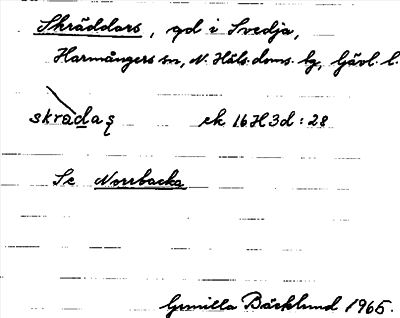 Skräddars, gd i Svedja,
Harmångers sn, N. Häls. doms. hg, Gävl. l.
skradaș ek 16H3d:28
Se Norrbacka
Gunilla Bäcklund 1965.